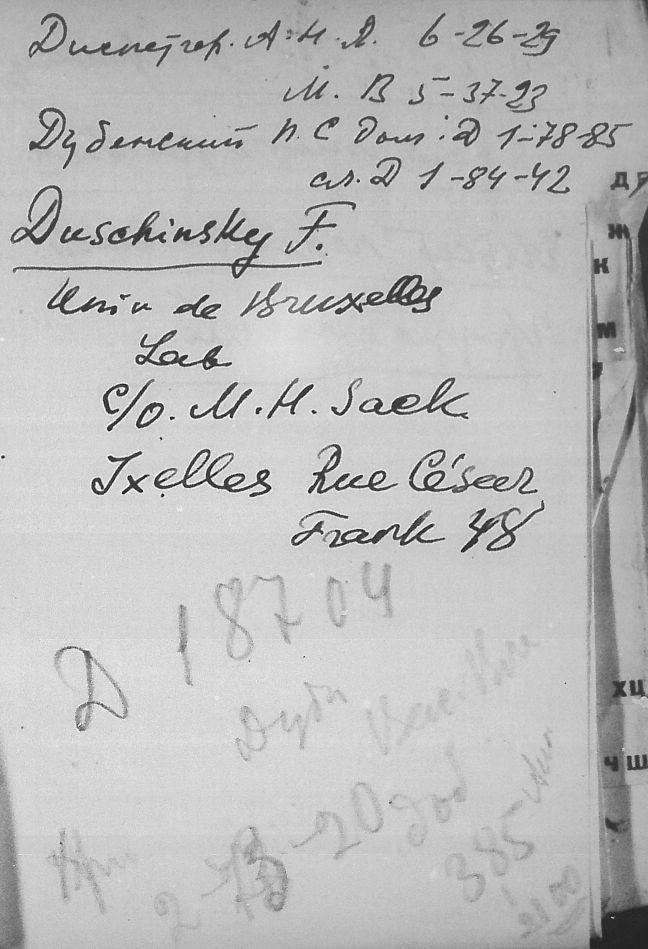 Диспетчер. А.Н.Л. 6-26-29
М. В 5-37-23
Дубенский П.С дом: Д 1-78-85
сл. Д 1-84-42
Duschinsky F.
Univ de Bruxelles
Lab
c/o. M. H. Sack
Ixelles Rue César
Frank 48
Д 18704
385
2100
К
Ж
М
ХЦ
ЧШ